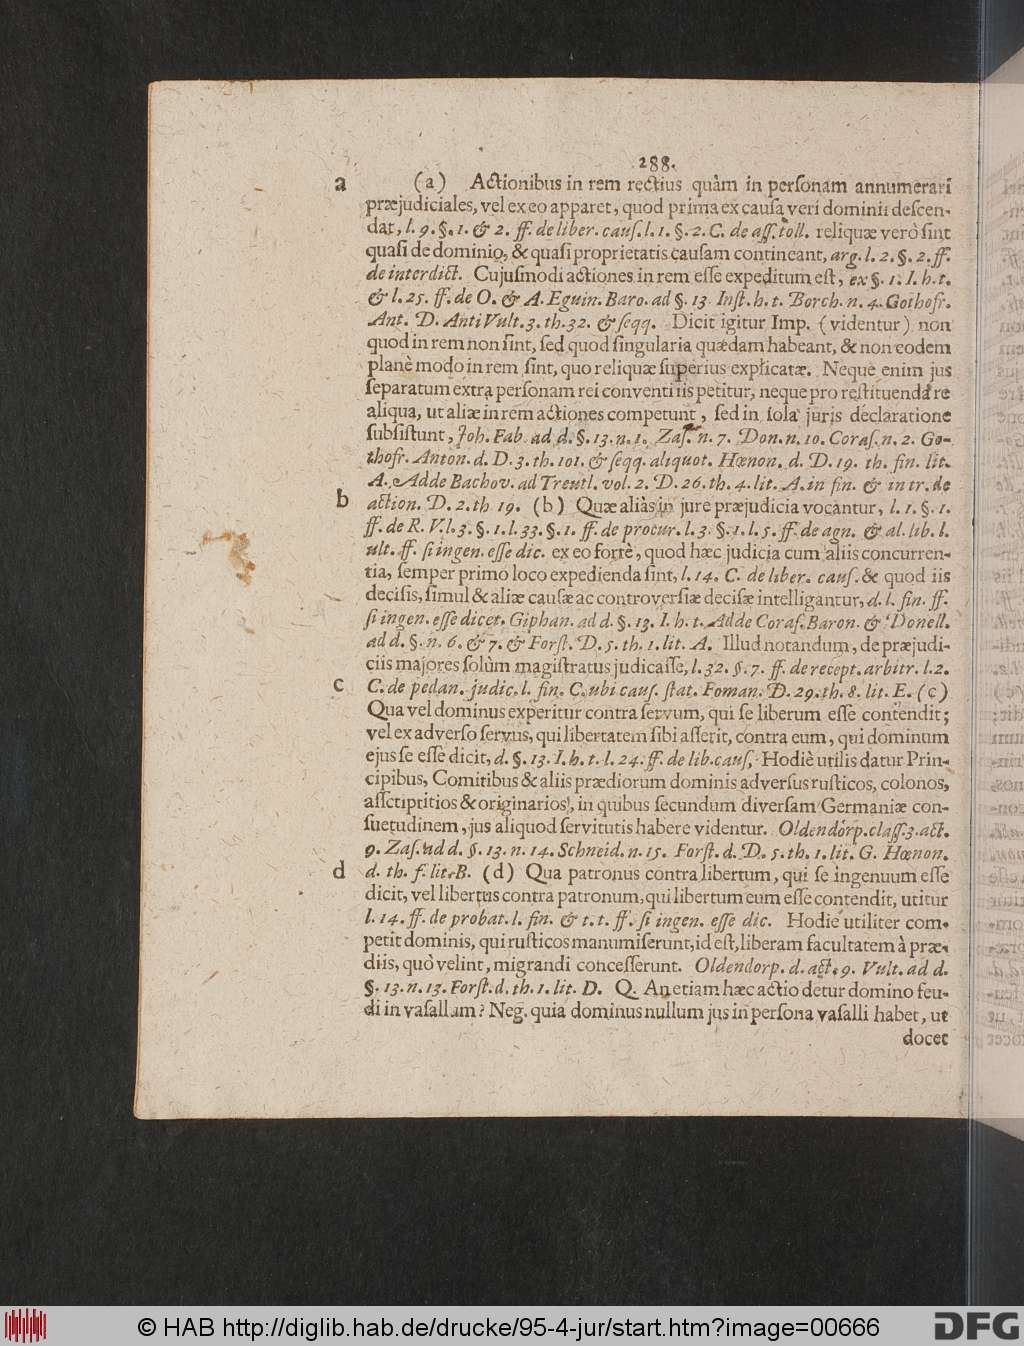 288.
a (a) Actionibus in rem rectius quàm in personam annumerari
præjudiciales, vel ex eo apparet, quod prima ex causa veri dominii descen-
dat, l. 9. §. 1. & 2. ff. de liber. caus. l. 1. §. 2. C. de ass. toll. reliquæ verò sint
quasi de dominio, & quasi proprietatis causam contineant, arg. l. 2. §. 2. ff.
de interdict. Cujusmodi actiones in rem esse expeditum est, ex §. 1. I. h. t.
& l. 25. ff. de O. & A. Eguin. Baro. ad §. 13. Inst. h. t. Borch. n. 4. Gothofr.
Ant. D. Anti Vult. 3. th. 32. & seqq. Dicit igitur Imp. (videntur) non
quod in rem non sint, sed quod singularia quædam habeant, & non eodem
planè modo in rem sint, quo reliquæ superius explicatæ. Neque enim jus
separatum extra personam rei conventi iis petitur, neque pro restituenda re
aliqua, ut aliæ in rem actiones competunt, sed in sola juris declaratione
subsistunt, Joh. Fab. ad d. §. 13. n. 1. Zas. n. 7. Don. n. 10. Coras. n. 2. Go-
thofr. Anton. d. D. 3. th. 101. & seqq. aliquot. Hœnon. d. D. 19. th. fin. lit.
A. Adde Bachov. ad Treutl. vol. 2. D. 26. th. 4. lit. A. in fin. & in tr. de
b action. D. 2. th 19. (b) Quæ aliàs in jure præjudicia vocantur, l. 1. §. 1.
ff. de R. V. l. 3. §. 1. l. 33. §. 1. ff. de procur. l. 3. §. 1. l. 5. ff. de agn. & al. lib. l.
ult. ff. si ingen. esse dic. ex eo fortè, quod hæc judicia cum aliis concurren-
tia, semper primo loco expedienda sint, l. 14. C. de liber. caus. & quod iis
decisis, simul & aliæ causæ ac controversiæ decisæ intelligantur, d. l. fin. ff.
si ingen. esse dicet. Giphan. ad d. §. 13. I. h. t. Adde Coras. Baron. & Donell.
ad d. §. n. 6. & 7. & Forst. D. 5. th. 1. lit. A. Illud notandum, de præjudi-
ciis majores solùm magistratus judicasse, l. 32. §. 7. ff. de recept. arbitr. l. 2.
c C. de pedan. judic. l. fin. C. ubi caus. stat. Foman. D. 29. th. 8. lit. E. (c)
Qua vel dominus experitur contra servum, qui se liberum esse contendit;
vel ex adverso servus, qui libertatem sibi asserit, contra eum, qui dominum
ejus se esse dicit, d. §. 13. I. h. t. l. 24. ff. de lib. caus. Hodiè utilis datur Prin-
cipibus, Comitibus & aliis prædiorum dominis adversus rusticos, colonos,
assctiptitios & originarios, in quibus secundum diversam Germaniæ con-
suetudinem, jus aliquod servitutis habere videntur. Oldendorp. class. 3. act.
9. Zas. ad d. §. 13. n. 14. Schneid. n. 15. Forst. d. D. 5. th. 1. lit. G. Hœnon.
d d. th. f. lit. B. (d) Qua patronus contra libertum, qui se ingenuum esse
dicit, vel libertus contra patronum, qui libertum eum esse contendit, utitur
l. 14. ff. de probat. l. fin. & t. t. ff. si ingen. esse dic. Hodie utiliter com-
petit dominis, qui rusticos manumiserunt, id est, liberam facultatem à præ-
diis, quò velint, migrandi concesserunt. Oldendorp. d. act. 9. Vult. ad d.
§. 13. n. 13. Forst. d. th. 1. lit. D. Q. An etiam hæc actio detur domino feu-
di in vasallum? Neg. quia dominus nullum jus in persona vasalli habet, ut
docet
© HAB http://diglib.hab.de/drucke/95-4-jur/start.htm?image=00666
DFG